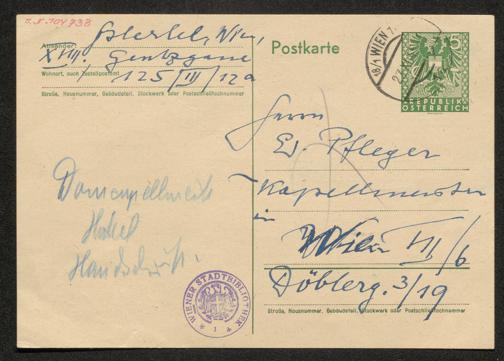 I.N. 704 738
Absender:
Wien,
XVIII. Gentzgasse
125/III/12a
Wohnort, auch Zustellpostamt
Straße, Hausnummer, Gebäudeteil, Stockwerk oder Postschließfachnummer
Postkarte
18/1 WIEN
5
REPUBLIK
ÖSTERREICH
Herrn
Ed. Pfleger
Kapellmeister
in
Wien VII/6
Döblerg. 3/19
Straße, Hausnummer, Gebäudeteil, Stockwerk oder Postschließfachnummer
Handschrift.
WIENER STADTBIBLIOTHEK
* 1 *